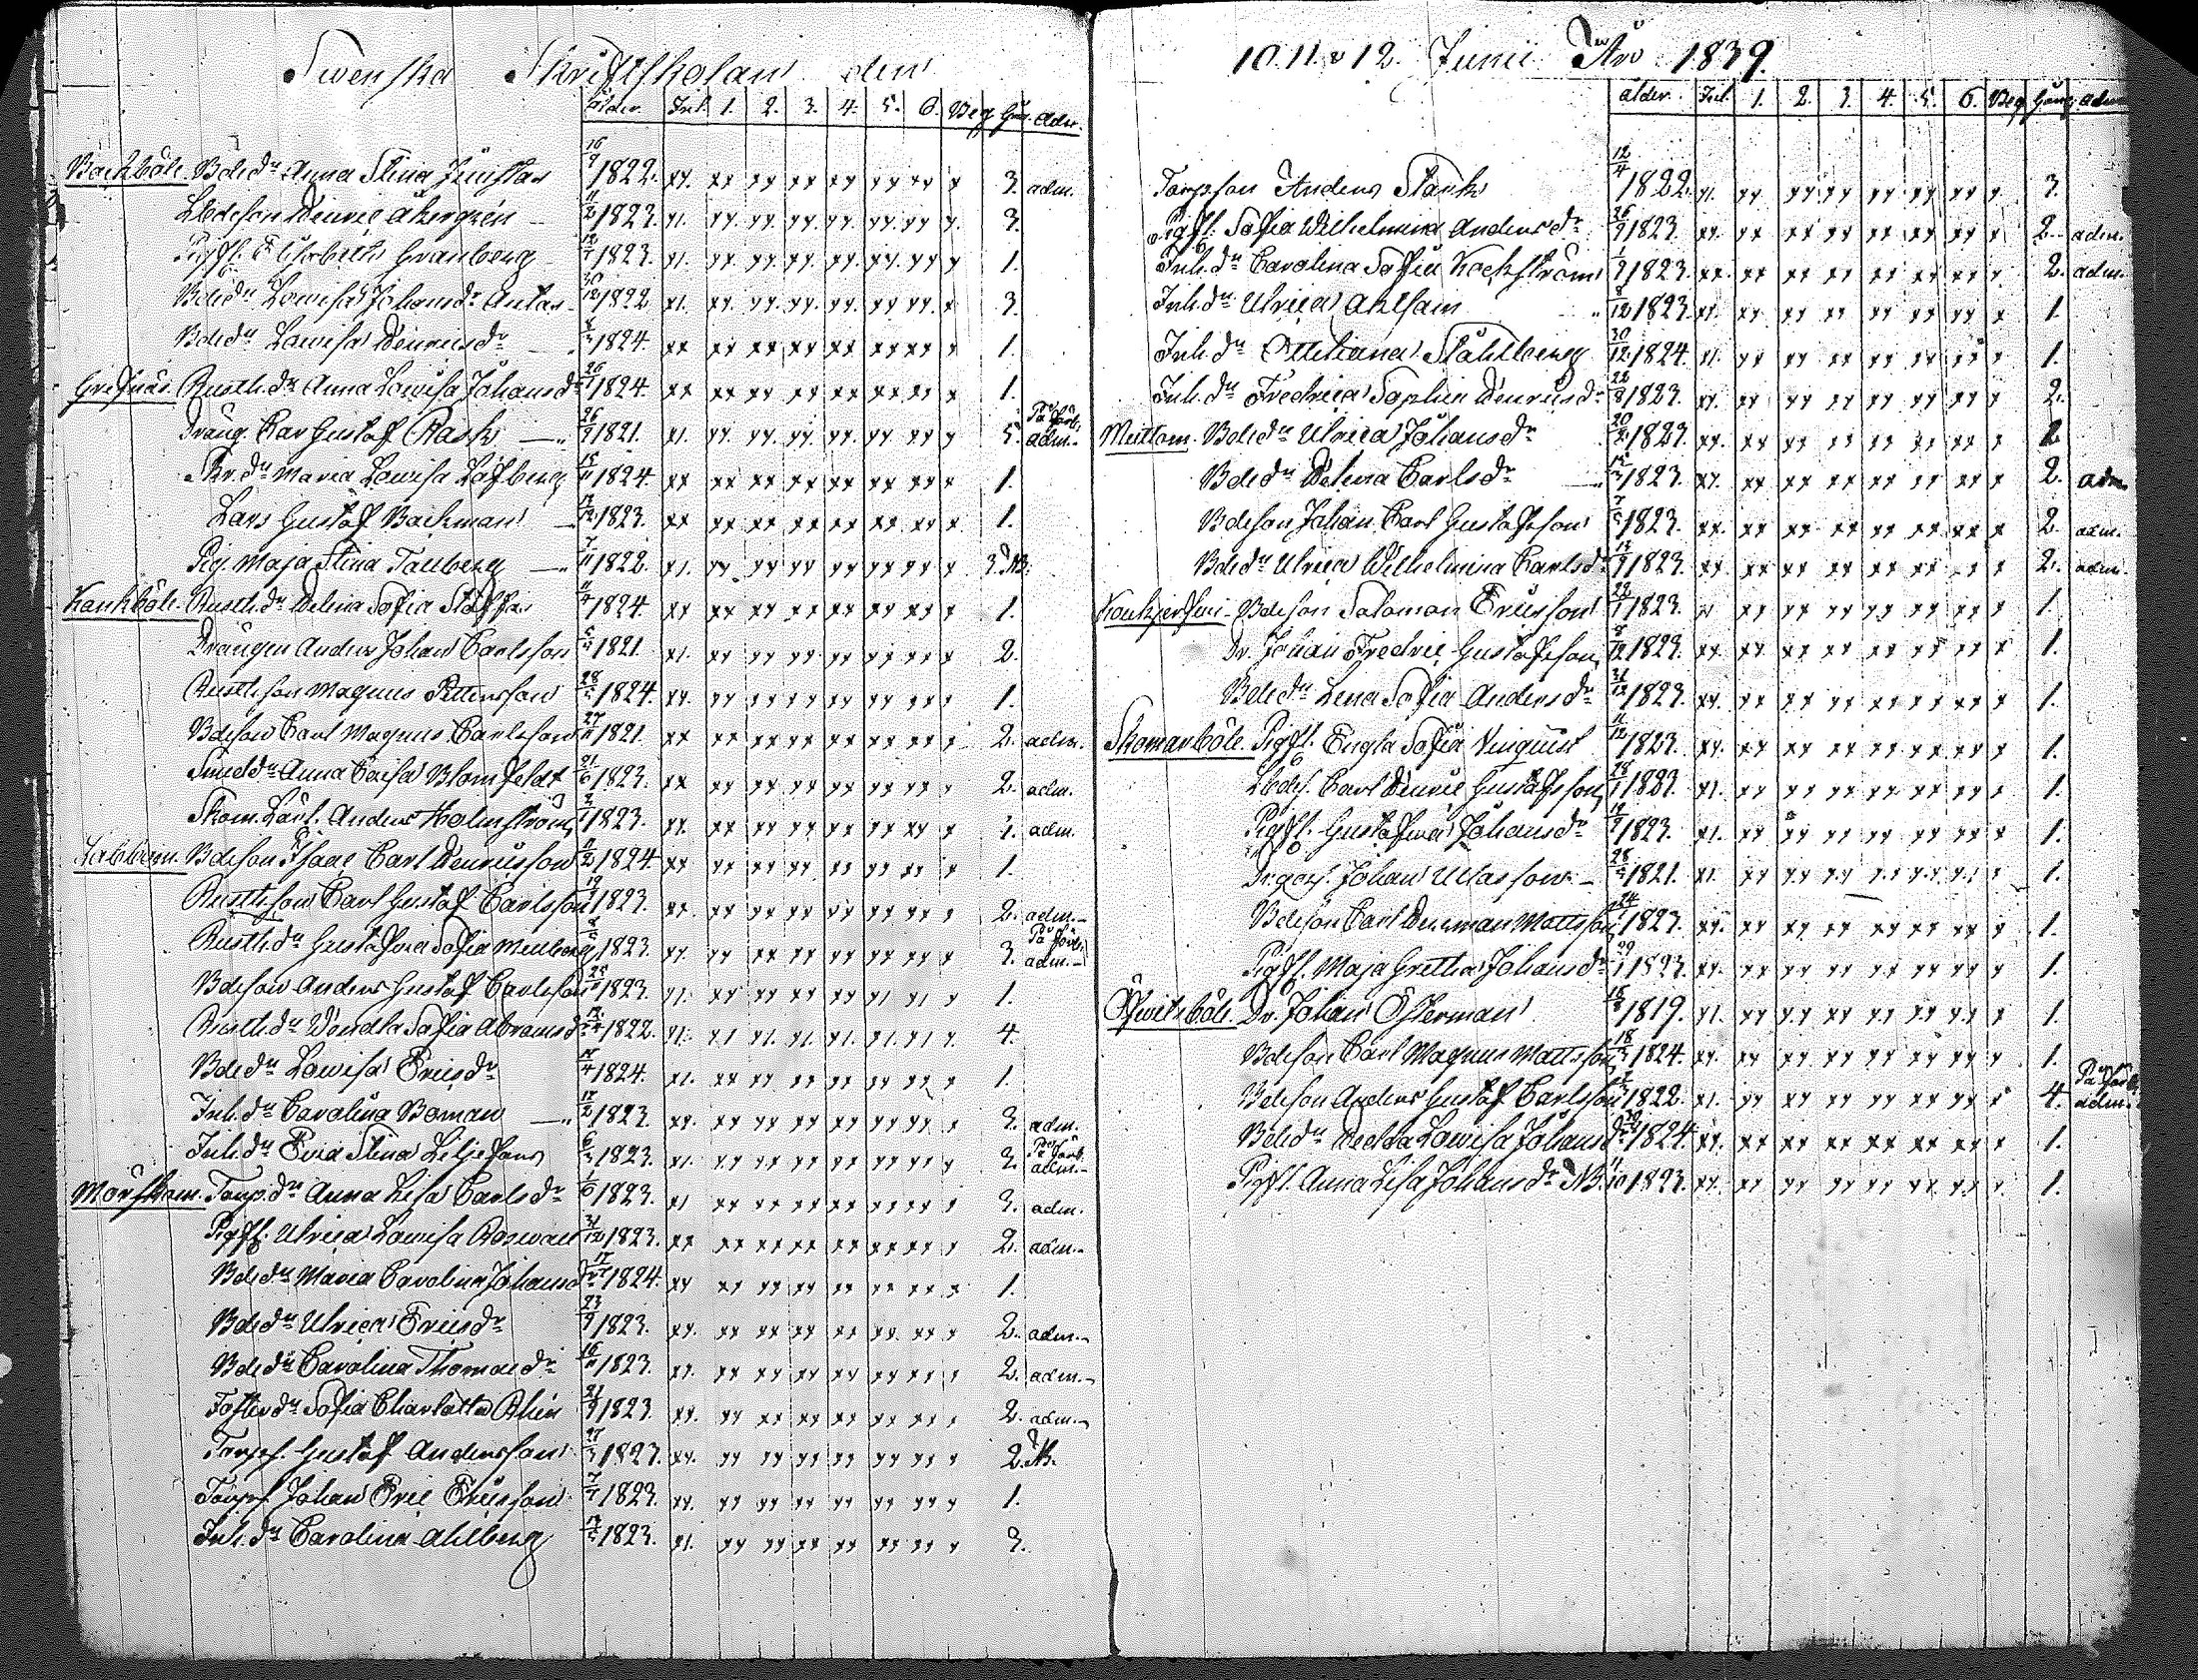 Swenska Skriftskolan den
ålder. Inl. 1. 2. 3. 4. 5. 6. Beg Gån. Adm.
Backböle. Bdedr Anna Stina 16/9 1822. xx. xx xx xx xx xx xx x 3. adm.
Henric Åkergrén 11/2 1823. x1. xx. xx. xx. xx. xx. xx. x. 3.
Pigfl. Elisabeth Granberg 1823. x1. xx. xx. xx. xx. xx. xx x 1.
Bdedr Lowisa Johansdr 30/12 1822 x1. xx. xx. xx. xx. xx. xx. x 3.
Bdedr Lowisa Henricsdr 1824. xx xx xx xx xx xx xx x 1.
Grefnäs. Rusth.dr Anna Lowisa Johansdr 26/1 1824. xx xx xx xx xx xx xx x 1.
Dräng. Carl Gustaf Rask 26/9 1821. x1. xx. xx. xx. xx. xx xx x 5. På förb. adm.
Skr.dr Maria Lowisa Löfberg 15/11 1824. xx xx xx xx xx xx xx x 1.
Lars Gustaf Backman 1823. xx xx xx xx xx xx xx x 1.
Pig. Maja Stina Tallberg 7/11 1822. x1. xx xx xx xx xx xx x 3. NB.
Kankböle. Rusth.dr Helena Sofia 1824. xx xx xx xx xx xx xx x 1.
Drängen Anders Johan Carlsson 1821 x1. xx xx xx xx xx xx x 2.
Rusth.son Magnus Pettersson 28 1824. xx. xx xx xx xx xx xx x 1.
Bdeson Carl Magnus Carlsson 27/11 1821. xx xx xx xx xx xx xx x 2. adm.
Smeddr Anna Caisa Blomfeldt 21/6 1823. xx xx xx xx xx xx xx x 2. adm.
Skom. Lärl. Anders Holmström 1823. xx. xx xx xx xx xx xx x 1. adm.
Labbom. Bdeson Isaac Carl Henricsson 11/2 1824 xx xx xx xx xx xx xx x 1.
Rusth.son Carl Gustaf Carlsson 19 1823. xx. xx xx xx xx xx xx x 2. adm.
Rusth.dr Gustafwa Sofia 1823 xx. xx xx xx xx xx xx x 3. På förb. adm.
Bdeson Anders Gustaf Carlsson 1823. x1. xx xx xx xx x1 x1 x 1.
Rusth.dr Wendla Sofia Abramsd. 1822. x1. x1 x1. x1. x1. x1. x1 x. 4.
Bdedr Lowisa Ericsdr 1824. x1. xx xx xx xx xx xx x 1.
Inh.dr Carolina Boman 1823. xx. xx xx xx xx xx xx x 3. adm.
Inh.dr Eva Stina Liljefors 6/3 1823. x1. xx xx xx xx xx xx x 2. På förb. adm.
Mörskom. Torp.dr Anna Lisa Carlsdr 1823. x1 xx xx xx xx xx xx x 3. adm.
Pigfl. Ulrica Lowisa Roswall 31/12 1823. xx xx xx xx xx xx xx x 2. adm.
Bdedr Maria Carolina Johansd. 1824. xx x1 xx xx xx xx xx x 1.
Bdedr Ulrica Ericsdr 23/9 1823. xx. xx xx xx xx xx xx x 2. adm.
Bdedr Carolina Thomasdr 16/11 1823. xx. xx xx xx xx xx xx x 2. adm.
Fosterdr Sofia Charlotta 21/9 1823. xx. xx xx xx xx xx xx x 2. adm.
Torps. Gustaf Andersson 27/3 1823. xx. xx xx xx xx xx xx x 2. NB.
Torps. Johan Eric Ericsson 1823. xx. xx xx xx xx xx xx x 1.
Inh.dr Carolina Ahlberg 1823. x1. xx xx xx xx xx xx x 3.
10. 11 & 12. Junii 1839.
ålder. Inl. 1. 2. 3. 4. 5. 6. Beg Gång. adm
Torpson Anders Stark 12/4 1822. x1. xx xx xx xx xx xx x 3.
Pigfl. Sofia Wilhelmina Andersdr 26/9 1823 xx. xx xx xx xx xx xx x 2. adm.
Inh.dr Carolina Sofia Kockström 1/9 1823. xx. xx xx xx xx xx xx x 2. adm.
Inh.dr Ulrica 8/12 1823. x1. xx xx xx xx xx xx x 1.
Inh.dr Ståhlberg 30/12 1824. x1. xx xx xx xx xx xx x 1.
Inh.dr Fredrica Sophia Henricsdr 22/8 1823. xx. xx xx xx xx xx xx x 2.
Bdedr Ulrica Johansdr 20 1823. xx. xx xx xx xx xx xx x 2
Bdedr Helena Carlsdr 1823. xx. xx xx xx xx xx xx x 2. adm
Bdeson Johan Carl Gustafsson 1823. xx. xx xx xx xx xx xx x 2. adm.
Bdedr Ulrica Wilhelmina Carlsdr 13/9 1823. xx. xx xx xx xx xx xx x 2. adm.
Bdeson Salomon Ericsson 22/1 1823. x1 xx xx xx xx xx xx x 1.
Dr. Johan Fredric Gustafsson 8/12 1823. xx. xx xx xx xx xx xx x 1.
Bdedr Lena Sofia Andersdr 31/12 1823. xx. xx xx xx xx xx xx x 1.
Skomarböle. Pigfl. Engla Sofia 11/12 1823. xx. xx xx xx xx xx xx x 1.
Carl Henric Gustafsson 28/1 1823. x1. xx xx xx xx xx xx x 1.
Pigfl. Gustafwa Johansdr 1823. x1. xx xx xx xx xx xx x 1.
Johan 28 1821. x1. xx xx xx xx xx xx x 1.
Bdeson Carl Herman Mattsson 24 1823. xx. xx xx xx xx xx xx x 1.
Pigfl. Maja Gretha Johansdr 1823. xx. xx xx xx xx xx xx x 1.
Dr. Johan Österman 1819. x1. xx xx xx xx xx xx x 1.
Bdeson Carl Magnus Mattsson 18 1824. xx. xx xx xx xx xx xx x 1.
Bdeson Anders Gustaf Carlsson 1822. x1. xx xx xx xx xx xx x 4. På förb. adm.
Bdedr Hedda Lowisa Johansd. 1824. xx. xx xx xx xx xx xx x 1.
Pigfl. Anna Lisa Johansdr NB. 11/10 1823. xx. xx xx xx xx xx xx x. 1.